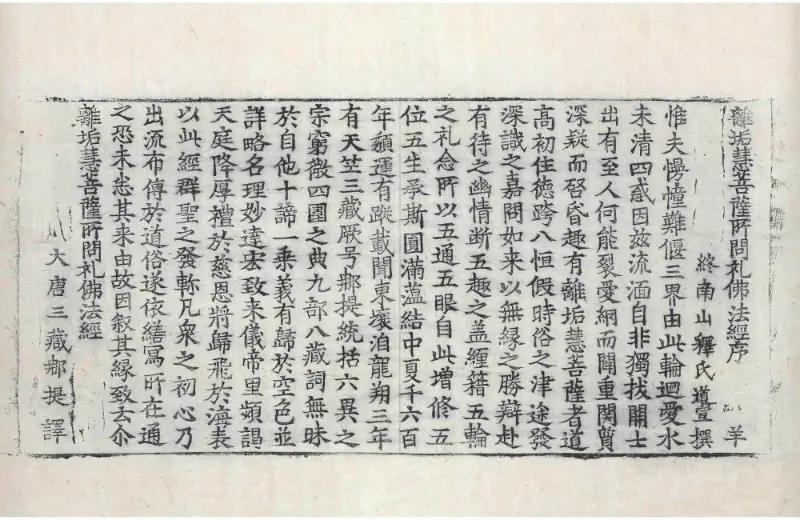 離垢慧菩薩所問礼佛法經序 羊
終南山釋氏道宣撰
惟夫慢幢難偃三界由此輪迴愛水
未清四惑因茲流湎自非獨拔開士
出有至人何能裂愛網而開重関質
深疑而啓昏趣有離垢慧菩薩者道
高初住德跨八恒假時俗之津途發
深識之嘉問如来以無縁之勝辯赴
有待之幽情断五趣之盖纏籍五輪
之礼念所以五通五眼自此增修五
位五生承斯圓滿薀結中夏千六百
年頽運有蹤載聞東壤洎龍朔三年
有天竺三藏厥号那提統括六異之
宗窮微四圍之典九部八藏詞無昧
於自他十諦一乗義有歸於空色並
詳略名理妙達宏致来儀帝里頻謁
天庭降厚禮於慈恩將歸飛於海表
以此經群聖之發軫凡衆之初心乃
出流布傳於道俗遂依繕寫所在通
之恐未悉其来由故因叙其縁致云尒
離垢慧菩薩所問礼佛法經
大唐三藏那提譯